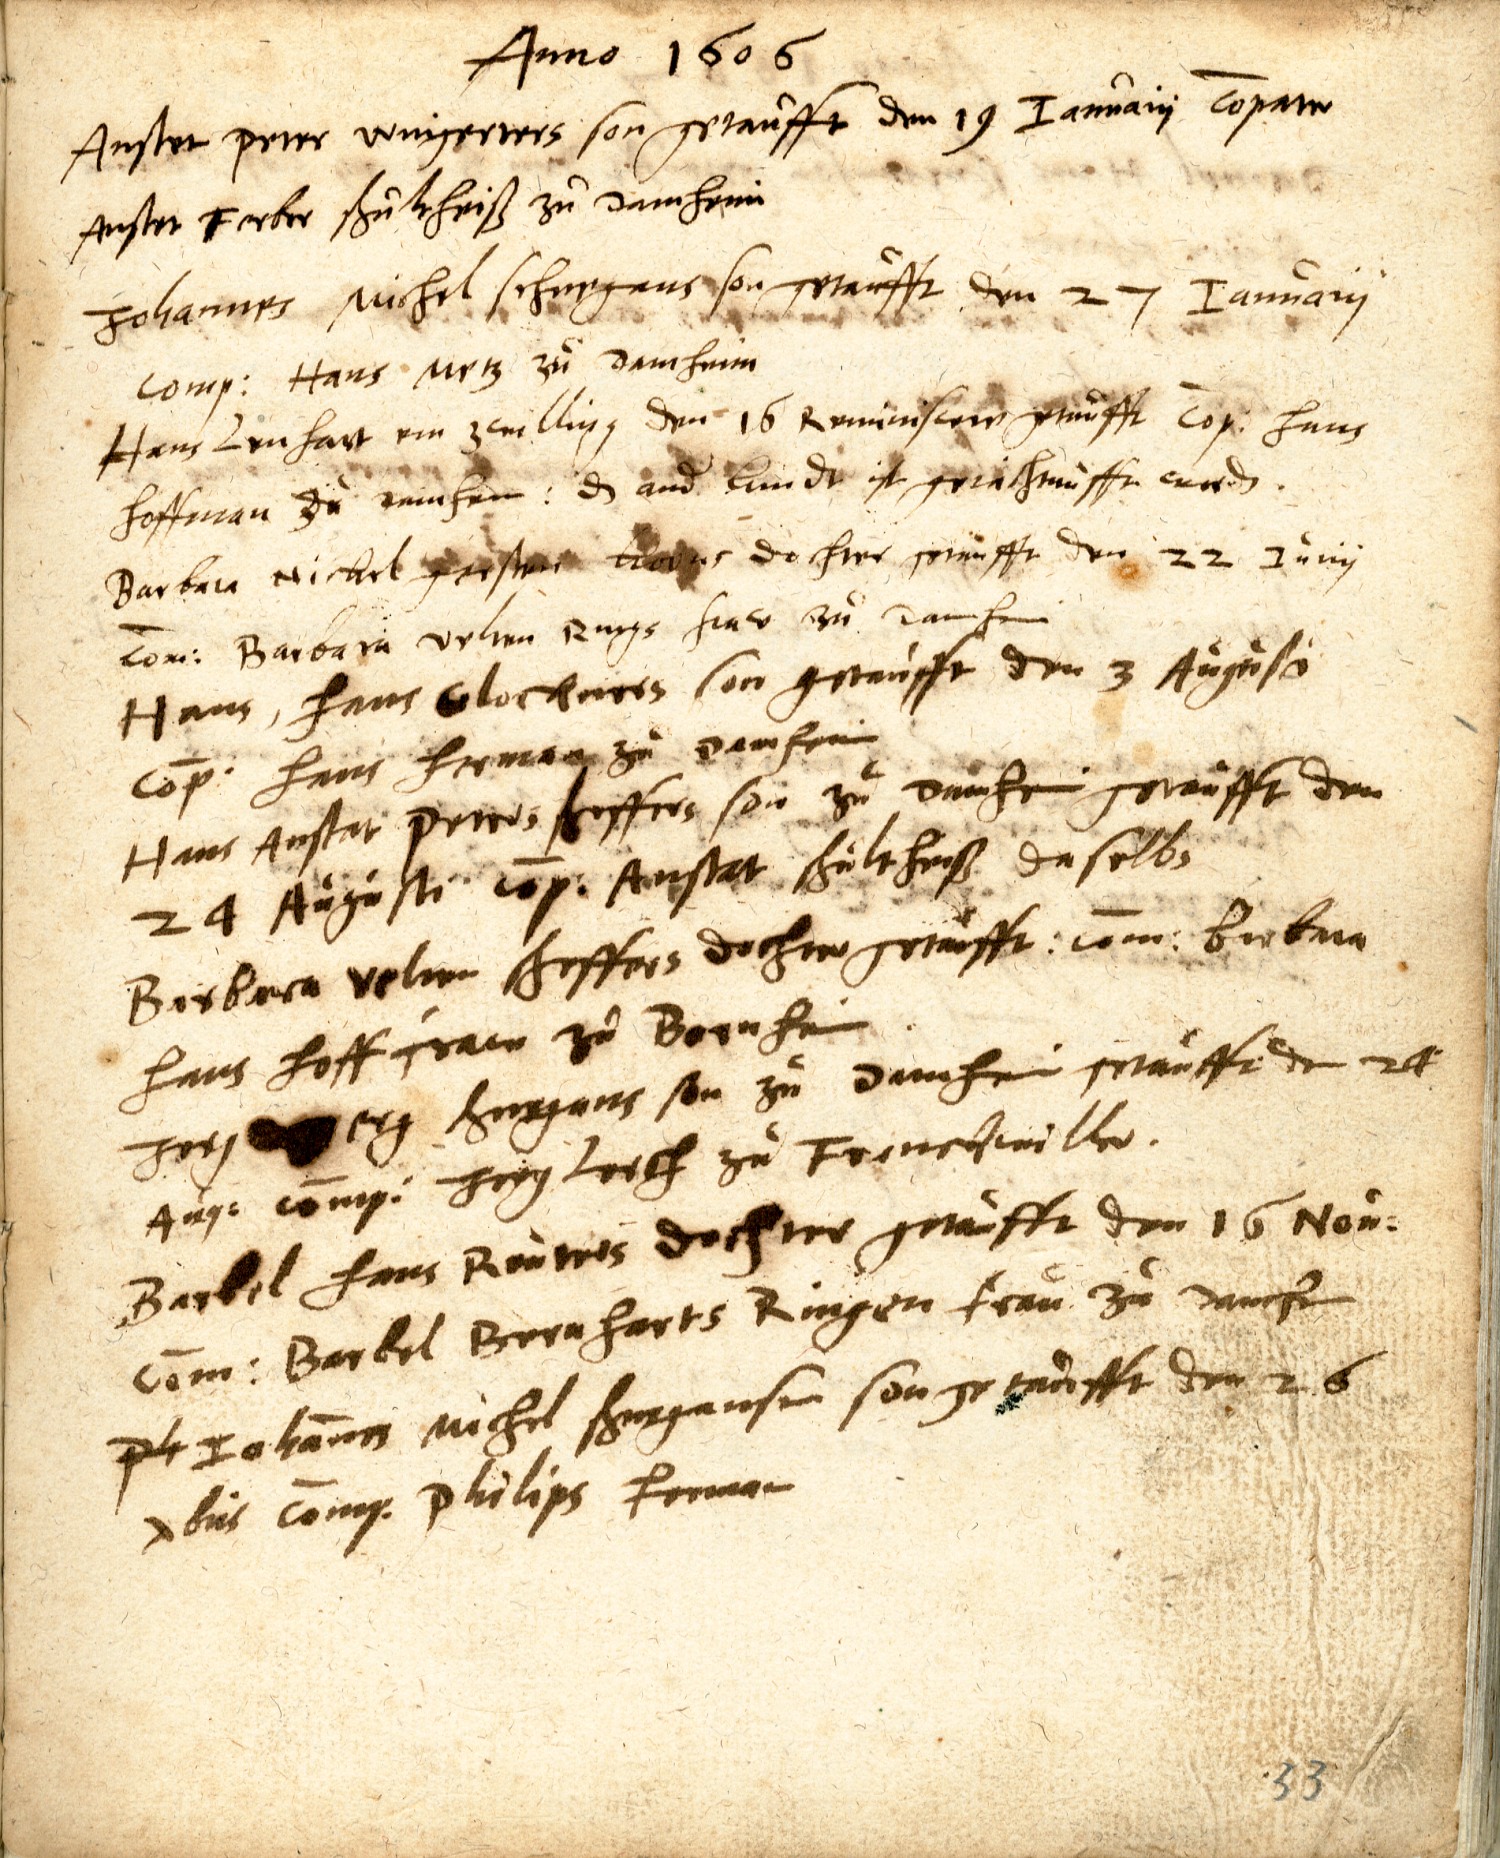 Anno 1606
Anstet peter wingerters son getaufft den 19 Ianuarij Copater
Anstet Ferber shultheiß zu Damheim
Johannes Michel schergans son getaufft den 27 Ianuarij
Comp: Hans Metz zu Damheim
Hans Lenhart ein zwilling den 16 Reminiscere getaufft Cop: hans
hoffman zu Damheim: ds and kindt ist geiachtaufft word.
Barbara Nickel dochter getaufft den 22 Iunij
Com: Barbara velten Rings fraw zu Damheim
Hans, hans Glockners son getaufft den 3 Augusti
Cop: hans herman zu Damheim
Hans Anstat Peters sheffers son zu Damheim getaufft den
24 Augusti Cop: Anstat shultheiß daselbs
Barbara velten sheffers dochter getaufft: Com: barbara
hans hoff fraw zu Bornheim
Jerg erg shergans son zu Damheim getaufft den 24
Aug: Comp: Jerg Lerch zu Franckwiller.
Barbel hans Reuters dochter getaufft den 16 Nou:
Com: Barbel Bernharts Ringen frau zu Damheim
Ph Iohannes Michel shergansen son getaufft den 26
xbris Comp. Philips Ferman
33